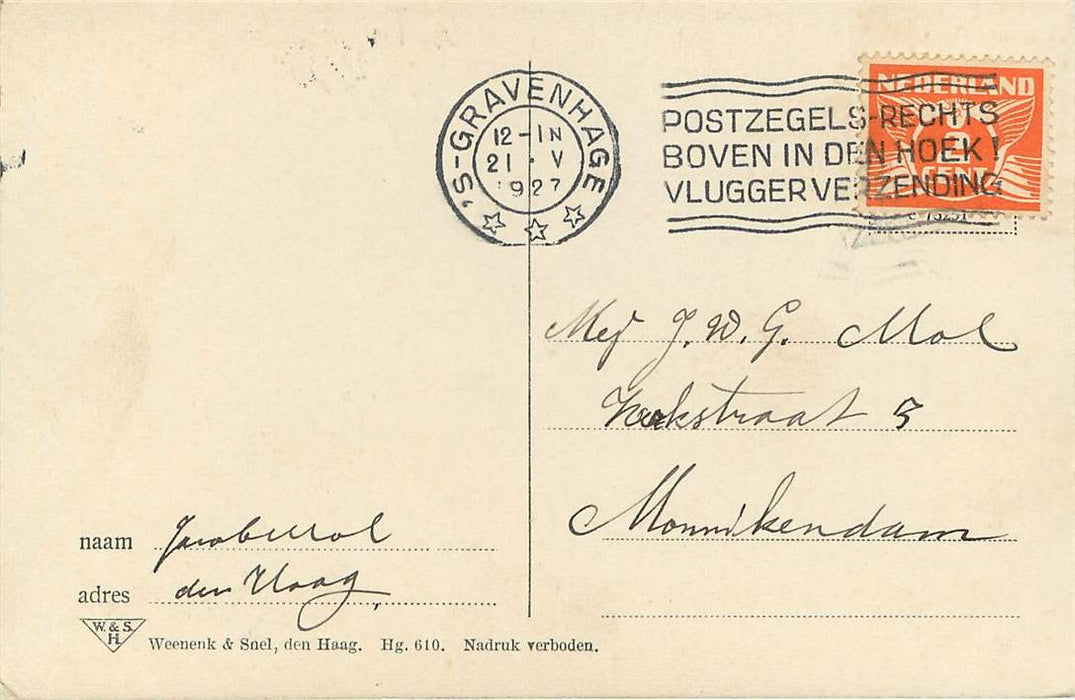 'S-GRAVENHAGE
12-1N
21 · V
1927
POSTZEGELS-RECHTS
BOVEN IN DEN HOEK!
VLUGGER VERZENDING
NEDERLAND
2
CENT
Mej J. W. G. Mol
Kerkstraat 3
Monnikendam
naam Jacob Mol
adres den Haag
W. & S.
H.
Weenenk & Snel, den Haag. Hg. 610. Nadruk verboden.